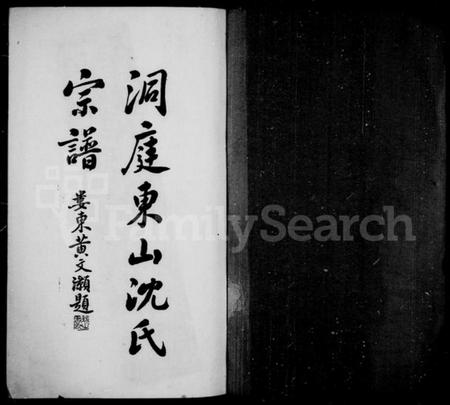 洞庭東山沈氏
宗譜
婁東黃文灝題
FamilySearch